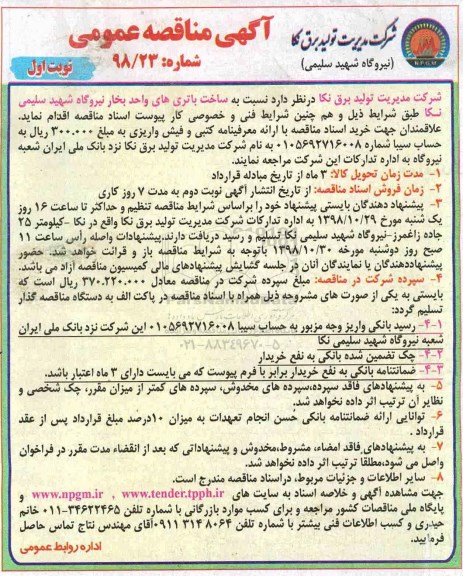 آگهی مناقصه عمومی
شماره: ۹۸/۲۳
نوبت اول
شرکت مدیریت تولید برق نکا
(نیروگاه شهید سلیمی)
N.P.G.M
شرکت مدیریت تولید برق نکا درنظر دارد نسبت به ساخت باتری های واحد بخار نیروگاه شهید سلیمی
نکا طبق شرایط ذیل و هم چنین شرایط فنی و خصوصی کار پیوست اسناد مناقصه اقدام نماید.
علاقمندان جهت خرید اسناد مناقصه با ارائه معرفینامه کتبی و فیش واریزی به مبلغ ۳۰۰.۰۰۰ ریال به
حساب سیبا شماره ۰۱۰۵۶۹۲۷۱۶۰۰۸ به نام شرکت مدیریت تولید برق نکا نزد بانک ملی ایران شعبه
نیروگاه به اداره تدارکات این شرکت مراجعه نمایند.
۱- مدت زمان تحویل کالا: ۳ ماه از تاریخ مبادله قرارداد
۲- زمان فروش اسناد مناقصه: از تاریخ انتشار آگهی نوبت دوم به مدت ۷ روز کاری
۳- پیشنهاد دهندگان بایستی پیشنهاد خود را براساس شرایط مناقصه تنظیم و حداکثر تا ساعت ۱۶ روز
یک شنبه مورخ ۱۳۹۸/۱۰/۲۹ به اداره تدارکات شرکت مدیریت تولید برق نکا واقع در نکا -کیلومتر ۲۵
جاده زاغمرز-نیروگاه شهید سلیمی نکا تسلیم و رسید دریافت دارند.پیشنهادات واصله رأس ساعت ۱۱
صبح روز دوشنبه مورخه ۱۳۹۸/۱۰/۳۰ باتوجه به شرایط مناقصه باز و قرائت خواهد شد. حضور
پیشنهاددهندگان یا نمایندگان آنان در جلسه گشایش پیشنهادهای مالی کمیسیون مناقصه آزاد می باشد.
۴- سپرده شرکت در مناقصه: مبلغ سپرده شرکت در مناقصه معادل ۳۷۰.۲۲۰.۰۰۰ ریال است که
بایستی به یکی از صورت های مشروحه ذیل همراه با اسناد مناقصه در پاکت الف به دستگاه مناقصه گذار
تسلیم گردد:
۴-۱- رسید بانکی واریز وجه مزبور به حساب سیبا ۰۱۰۵۶۹۲۷۱۶۰۰۸ این شرکت نزد بانک ملی ایران
شعبه نیروگاه شهید سلیمی نکا
۴-۲- چک تضمین شده بانکی به نفع خریدار
۴-۳- ضمانتنامه بانکی به نفع خریدار برابر با فرم پیوست که می بایست دارای ۳ ماه اعتبار باشد.
۵- به پیشنهادهای فاقد سپرده،سپرده های مخدوش، سپرده های کمتر از میزان مقرر، چک شخصی و
نظایر آن ترتیب اثر داده نخواهد شد.
۶- توانایی ارائه ضمانتنامه بانکی حسن انجام تعهدات به میزان ۱۰درصد مبلغ قرارداد پس از عقد
قرارداد .
۷- به پیشنهادهای فاقد امضاء، مشروط،مخدوش و پیشنهاداتی که بعد از انقضاء مدت مقرر در فراخوان
واصل می شود،مطلقا ترتیب اثر داده نخواهد شد.
۸- سایر اطلاعات و جزئیات مربوط، دراسناد مناقصه مندرج است.
جهت مشاهده آگهی و خلاصه اسناد به سایت های www.npgm.ir , www.tender.tpph.ir و
پایگاه ملی مناقصات کشور مراجعه و برای کسب موارد بازرگانی با شماره تلفن ۳۴۶۲۲۴۶۵-۰۱۱ خانم
حیدری و کسب اطلاعات فنی بیشتر با شماره تلفن ۸۰۶۴ ۳۱۴ ۰۹۱۱آقای مهندس نتاج تماس حاصل
فرمایید.
اداره روابط عمومی
۰۲۱-۸۸۳۴۹۶۷۰-۵